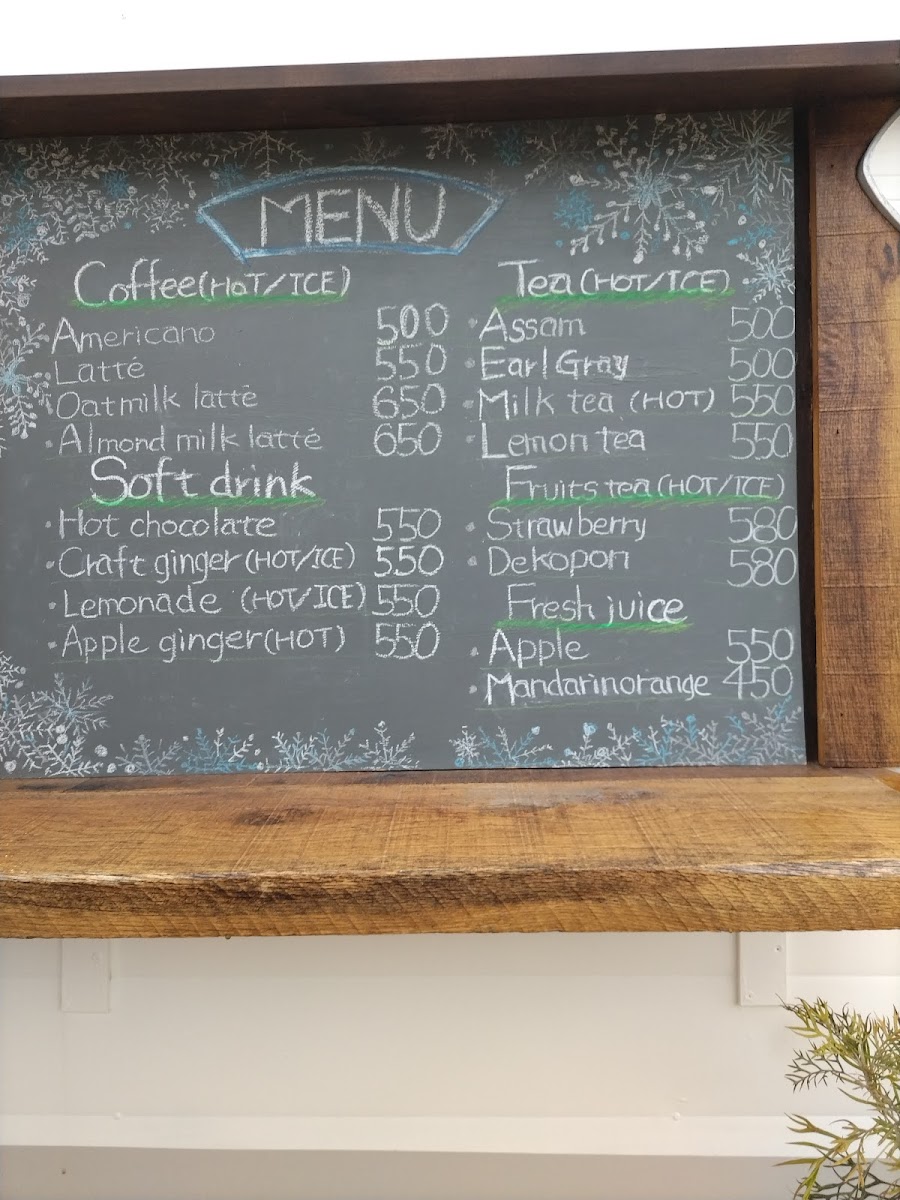 MENU
Coffee(HOT/ICE)
Americano 500
Latté 550
Oatmilk latté 650
Almond milk latté 650
Soft drink
・Hot chocolate 550
・Craft ginger(HOT/ICE) 550
・Lemonade (HOT/ICE) 550
・Apple ginger(HOT) 550
Tea(HOT/ICE)
・Assam 500
・Earl Gray 500
・Milk tea (HOT) 550
・Lemon tea 550
Fruits tea(HOT/ICE)
・Strawberry 580
・Dekopon 580
Fresh juice
・Apple 550
・Mandarinorange 450